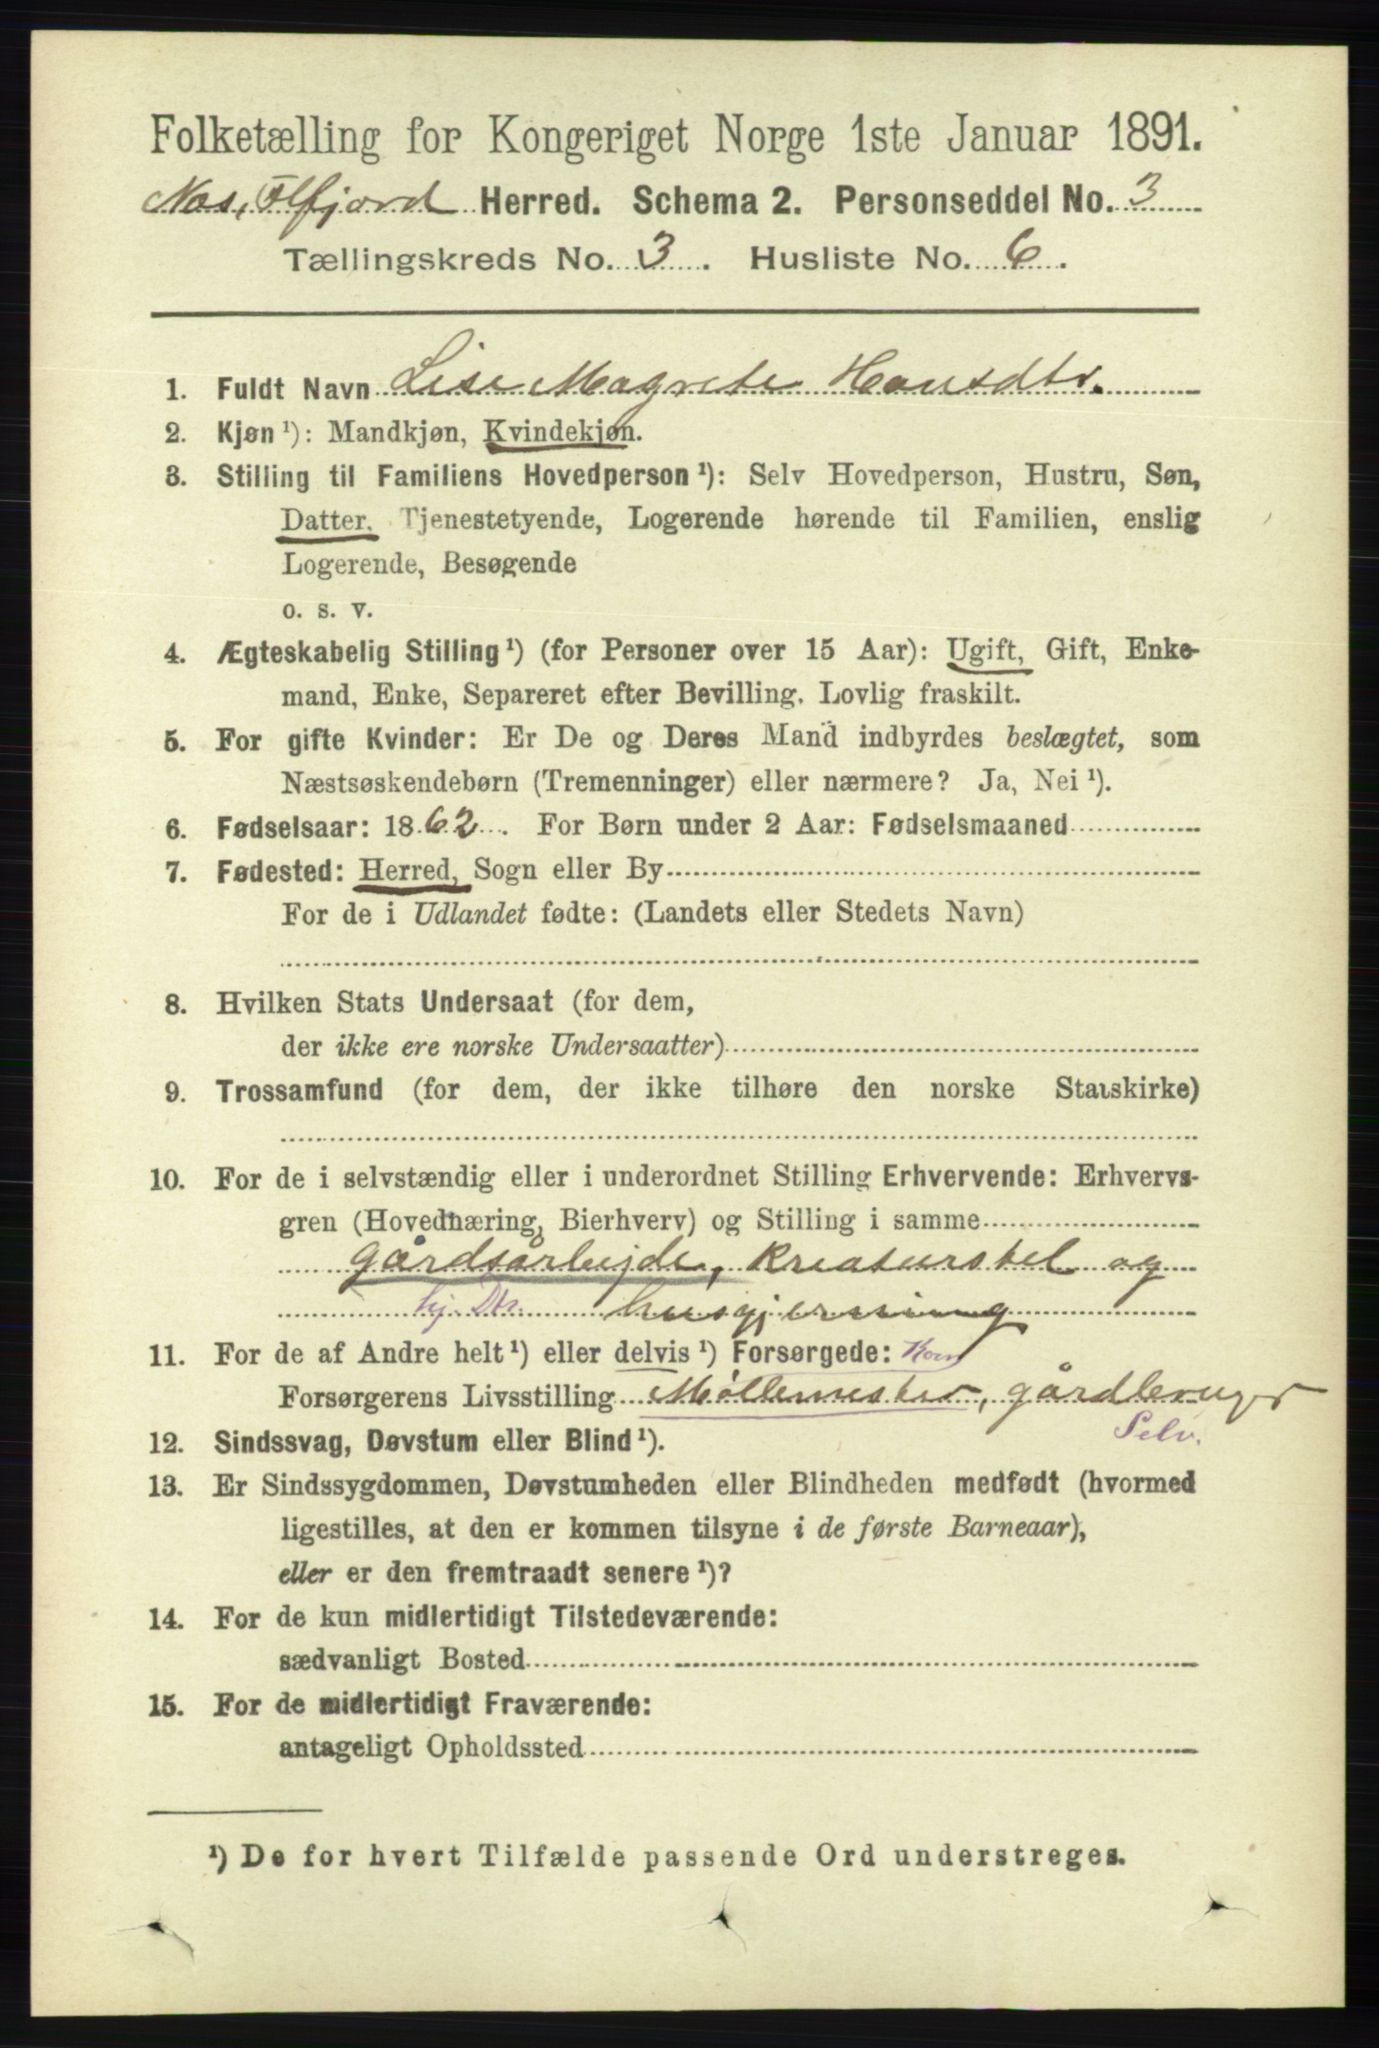 Folketælling for Kongeriget Norge 1ste Januar 1891.
Nas, Flfjord Herred. Schema 2. Personseddel No. 3
Tællingskreds No. 3. Husliste No. 6.
1. Fuldt Navn Lise Magrete Hansdtr.
2. Kjøn ¹): Mandkjøn, Kvindekjøn.
3. Stilling til Familiens Hovedperson ¹): Selv Hovedperson, Hustru, Søn,
Datter, Tjenestetyende, Logerende hørende til Familien, enslig
Logerende, Besøgende
o. s. v.
4. Ægteskabelig Stilling ¹) (for Personer over 15 Aar): Ugift, Gift, Enke-
mand, Enke, Separeret efter Bevilling. Lovlig fraskilt.
5. For gifte Kvinder: Er De og Deres Mand indbyrdes beslægtet, som
Næstsøskendebørn (Tremenninger) eller nærmere? Ja, Nei ¹).
6. Fødselsaar: 1862. For Børn under 2 Aar: Fødselsmaaned
7. Fødested: Herred, Sogn eller By
For de i Udlandet fødte: (Landets eller Stedets Navn)
8. Hvilken Stats Undersaat (for dem,
der ikke ere norske Undersaatter)
9. Trossamfund (for dem, der ikke tilhøre den norske Statskirke)
10. For de i selvstændig eller i underordnet Stilling Erhvervende: Erhvervs-
gren (Hovednæring, Bierhverv) og Stilling i samme
gårdsårbejde, Kreaturstel og
hj. Dtr. husgjerning
11. For de af Andre helt ¹) eller delvis ¹) Forsørgede: Korn
Forsørgerens Livsstilling Møllemester, gårdbruger
Selv.
12. Sindssvag, Døvstum eller Blind ¹).
13. Er Sindssygdommen, Døvstumheden eller Blindheden medfødt (hvormed
ligestilles, at den er kommen tilsyne i de første Barneaar),
eller er den fremtraadt senere ¹)?
14. For de kun midlertidigt Tilstedeværende:
sædvanligt Bosted
15. For de midlertidigt Fraværende:
antageligt Opholdssted
¹) De for hvert Tilfælde passende Ord understreges.